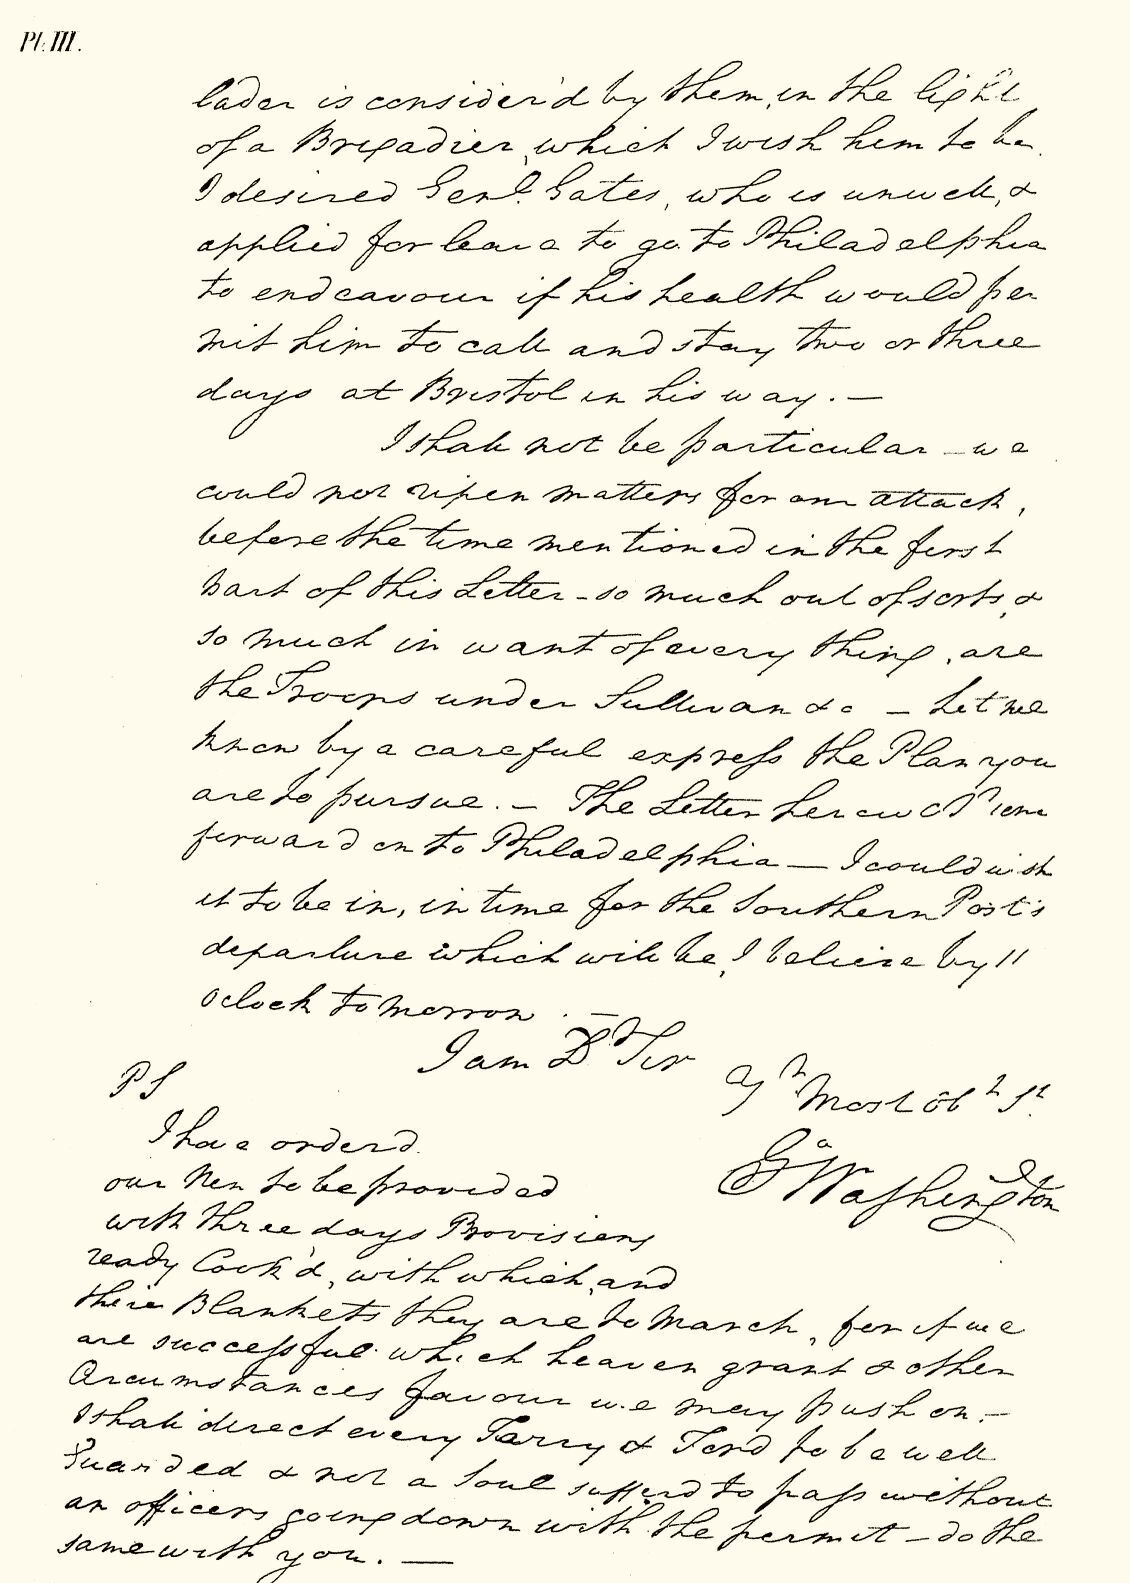 Pl. III.
lader is consider'd by them, in the light
of a Brigadier, which I wish him to be
I desired Genl. Gates, who is unwell, &
applied for leave to go to Philadelphia
to endeavour if his health would per
mit him to call and stay two or three
days at Bristol in his way. —
I shall not be particular — we
could not ripen matters for our attack,
before the time mentioned in the first
part of this Letter - so much out of sorts, &
so much in want of every thing, are
the Troops under Sullivan &c — Let me
know by a careful express the Plan you
are to pursue. — The Letter herewith
forward on to Philadelphia — I could wish
it to be in, in time for the Southern Post's
departure which will be, I believe by 11
oclock tomorrow. —
I am Dr Sir
Yr Most Obt St
PS
Go Washington
I have orderd
our Men to be provided
with three days Provisions
ready Cook'd, with which, and
their Blankets they are to March, for if we
are successful which heaven grant & other
Circumstances favour we may push on. —
I shall direct every Ferry & Ford to be well
Guarded & not a Soul sufferd to pass without
an officers going down with the permit — do the
same with you. —